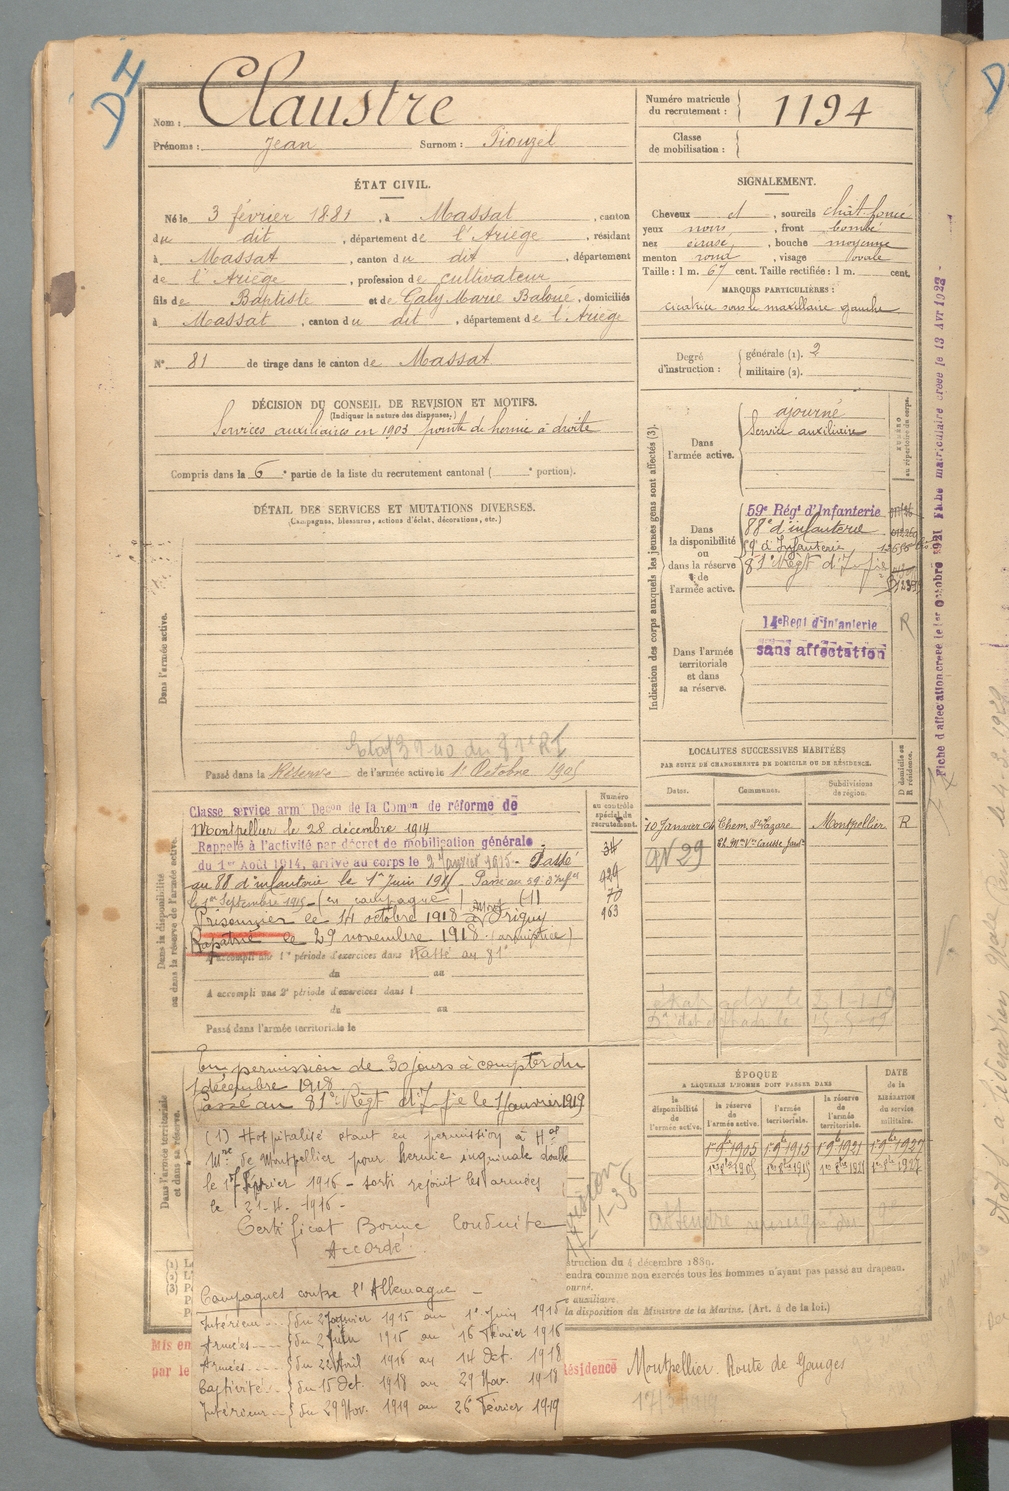 Nom : Claustre
Prénoms : Jean Surnom : Piouzel
Numéro matricule du recrutement : 1194
Classe de mobilisation :
ÉTAT CIVIL.
Né le 3 février 1881, à Massat, canton
du dit, département de l'Ariège, résidant
à Massat, canton du dit, département
de l'Ariège, profession de cultivateur
fils de Baptiste et de Galy Marie Baloué, domiciliés
à Massat, canton du dit, département de l'Ariège
N° 81 de tirage dans le canton de Massat
SIGNALEMENT.
Cheveux et, sourcils chât. foncé
yeux noirs, front bombé
nez écrasé, bouche moyenne
menton rond, visage ovale
Taille : 1 m. 67 cent. Taille rectifiée : 1 m. cent.
MARQUES PARTICULIÈRES :
cicatrice sous le maxillaire gauche
Degré d'instruction : générale (1). 2
militaire (2).
DÉCISION DU CONSEIL DE REVISION ET MOTIFS.
(Indiquer la nature des dispenses.)
Services auxiliaires en 1903 pointe de hernie à droite
Compris dans la 6e partie de la liste du recrutement cantonal ( e portion).
DÉTAIL DES SERVICES ET MUTATIONS DIVERSES.
(Campagnes, blessures, actions d'éclat, décorations, etc.)
Dans l'armée active.
Passé dans la Réserve de l'armée active le 1er Octobre 1905
Indication des corps auxquels les jeunes gens sont affectés (3).
Dans l'armée active.
ajourné
Service auxiliaire
Dans la disponibilité ou dans la réserve de l'armée active.
59e Régt d'Infanterie
88e d'infanterie
59e d'Infanterie
81e Regt d'Inf ie
Dans l'armée territoriale et dans sa réserve.
14e Regt d'Infanterie R
sans affectation
Fiche d'affectation créée le 1er Octobre 1921 Fiche matriculaire créée le 13 Avr 1922 -
Dans la disponibilité ou dans la réserve de l'armée active.
Numéro au contrôle spécial du recrutement.
Classé service armé Decon de la Comon de réforme de
Montpellier le 28 décembre 1914
Rappelé à l'activité par décret de mobilisation générale
du 1er Août 1914, arrivé au corps le 2 Janvier 1915 - Passé
au 88 d'infanterie le 1er Juin 1915 - Passé au 59e d'Infie
le 1er Septembre 1915 - en campagne (1)
Prisonnier le 14 octobre 1918 à Origny
Rapatrié le 29 novembre 1918 (armistice)
A accompli une 1re période d'exercices dans l Passé au 81e
du au
A accompli une 2e période d'exercices dans l
du au
Passé dans l'armée territoriale le
34
929
70
963
LOCALITÉS SUCCESSIVES HABITÉES
PAR SUITE DE CHANGEMENTS DE DOMICILE OU DE RÉSIDENCE.
Dates. Communes. Subdivisions de région. D domicile ou R résidence.
10 Janvier 04 Chem. St Lazare Montpellier R
Dans l'armée territoriale et dans sa réserve.
En permission de 30 jours à compter du
1 décembre 1918
Passé au 81e Regt d'Inf ie le 1 Janvier 1919
(1) Hospitalisé étant en permission à Hal
Mre de Montpellier pour hernie inguinale double
le 17 Février 1916 - sorti rejoint les armées
le 21-4-1916 -
Certificat Bonne Conduite
Accordé
Campagnes contre l'Allemagne -
Intérieur du 2 Janvier 1915 au 1er Juin 1915
Armées du 2 Juin 1915 au 16 Février 1916
Armées du 22 Avril 1916 au 14 Oct. 1918
Captivité du 15 Oct. 1918 au 29 Nov. 1918
Intérieur du 29 Nov. 1919 au 26 Février 1919
ÉPOQUE
A LAQUELLE L'HOMME DOIT PASSER DANS
DATE de la LIBÉRATION du service militaire.
la disponibilité de l'armée active. la réserve de l'armée active. l'armée territoriale. la réserve de l'armée territoriale.
1er 9bre 1905 1er 9bre 1915 1er 9bre 1921 1er 9bre 1927
1er 8bre 1905 1er 8bre 1915 1er 8bre 1921 1er 8bre 1927
struction du 4 décembre 1889.
endra comme non exercés tous les hommes n'ayant pas passé au drapeau.
ourné.
e auxiliaire.
la disposition du Ministre de la Marine. (Art. 4 de la loi.)
Mis en
par le
Résidence Montpellier Route de Ganges